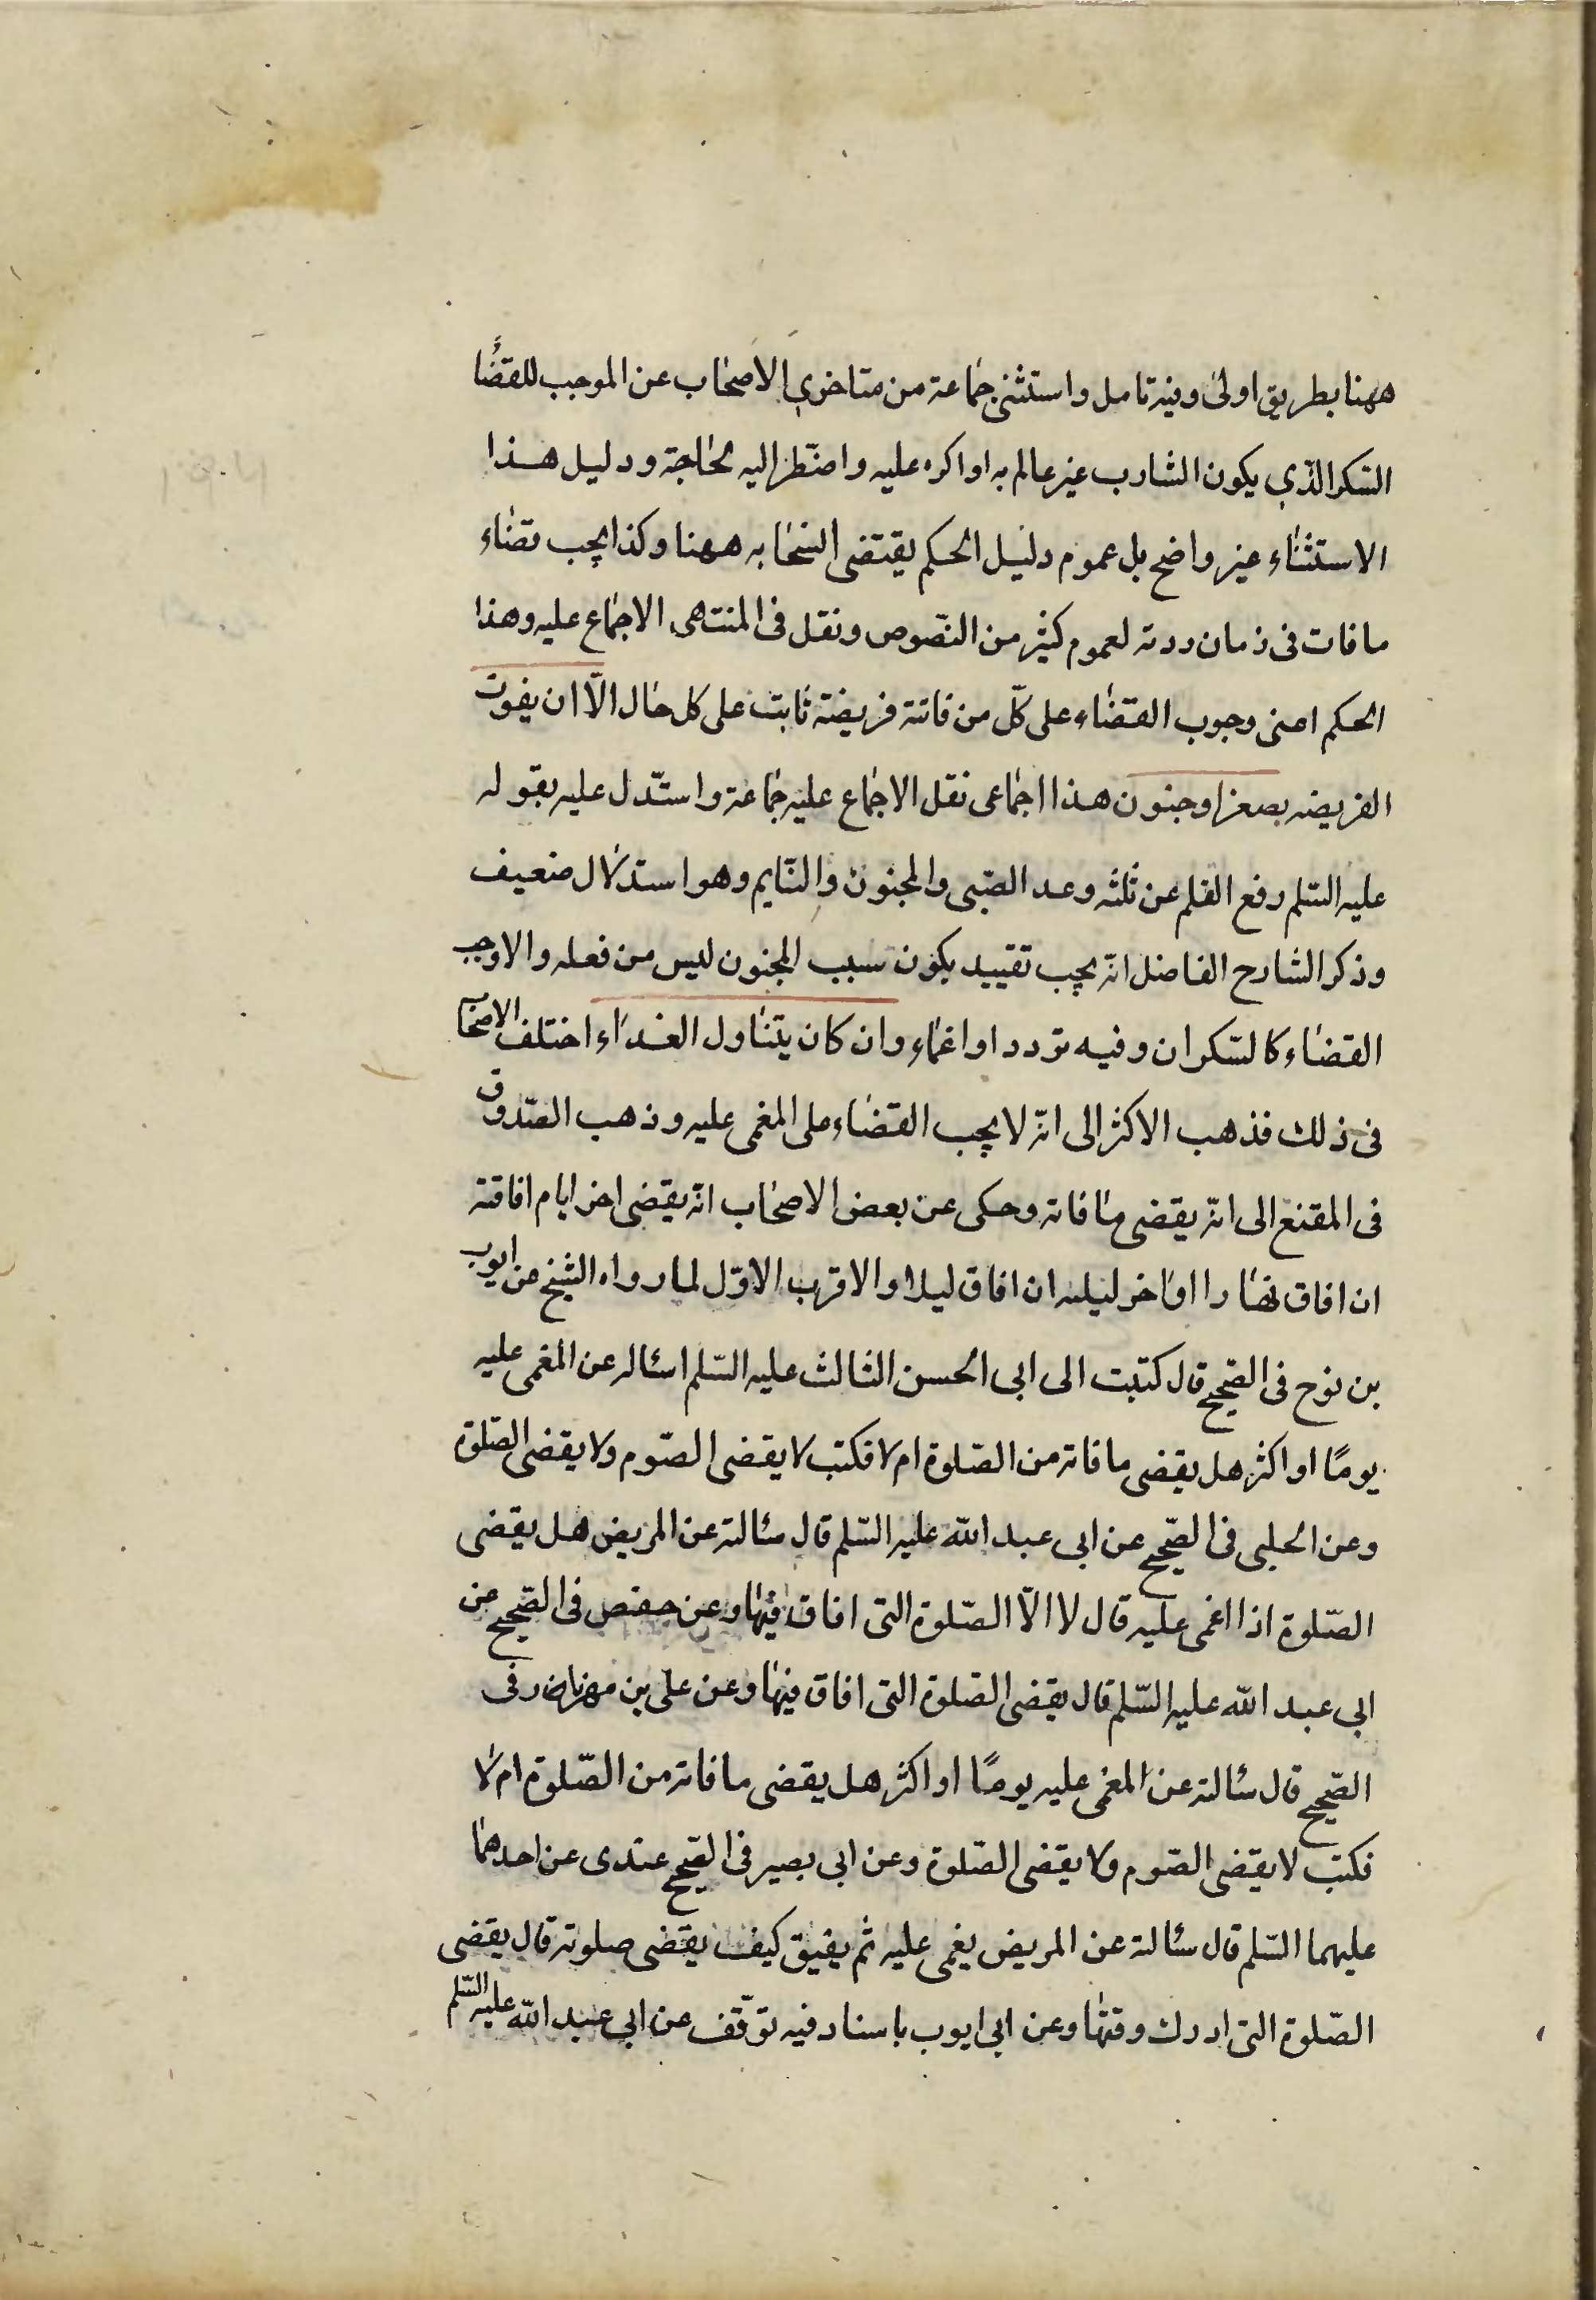 ههنا بطريق اولى وفيه تامل واستثنى جماعة من متاخرى الاصحاب عن الموجب للقضاء
السّكر الذى يكون الشارب غير عالم به او اكره عليه واضطرّ اليه لحاجة ودليل هذا
الاستثناء غير واضح بل عموم دليل الحكم يقتضى انسحابه ههنا وكذا يجب قضاء
ما فات فى زمان ردته لعموم كثير من النّصوص ونقل فى المنتهى الاجماع عليه وهذا
الحكم اعنى وجوب القضاء على كلّ من فاتته فريضة ثابت على كل حال الّا ان يفوت
الفريضه بصغر او جنون هذا اجماعى نقل الاجماع عليه جماعة واستدّل عليه بقوله
عليه السّلم رفع القلم عن ثلثه وعد الصّبى والمجنون والنّايم وهو استدلال ضعيف
وذكر الشارح الفاضل انّه يجب تقييد بكون سبب الجنون ليس من فعله والا وجب
القضاء كالسّكران وفيه تردد او اغماء وان كان يتناول الغداء اختلف الاصحاب
فى ذلك فذهب الاكثر الى انّه لا يجب القضاء على المغمى عليه وذهب الصّدوق
فى المقنع الى انّه يقضى ما فاته وحكى عن بعض الاصحاب انّه يقضى اخر ايام افاقته
ان افاق نهارا او اخر ليلته ان افاق ليلا والاقرب الاوّل لما رواه الشيخ عن ايوب
بن نوح فى الصّحيح قال كتبت الى ابى الحسن الثالث عليه السّلم اسئاله عن المغمى عليه
يومًا او اكثر هل يقضى ما فاته من الصّلوة ام لا فكتب لا يقضى الصّوم ولا يقضى الصّلوة
وعن الحلبى فى الصّحيح عن ابى عبد الله عليه السّلم قال سئالته عن المريض هل يقضى
الصّلوة اذا اغمى عليه قال لا الّا الصّلوة التى افاق فيها وعن حفص فى الصّحيح عن
ابى عبد الله عليه السّلم قال يقضى الصّلوة التى افاق فيها وعن على بن مهزيار فى
الصّحيح قال سئالته عن المغمى عليه يومًا او اكثر هل يقضى ما فاته من الصّلوة ام لا
فكتب لا يقضى الصّوم ولا يقضى الصّلوة وعن ابى بصير فى الصّحيح عندى عن احدهما
عليهما السّلم قال سئالته عن المريض يغمى عليه ثم يفيق كيف يقضى صلوته قال يقضى
الصّلوة التى ادرك وقتها وعن ابى ايوب باسناد فيه توقّف عن ابى عبد الله عليه السّلم